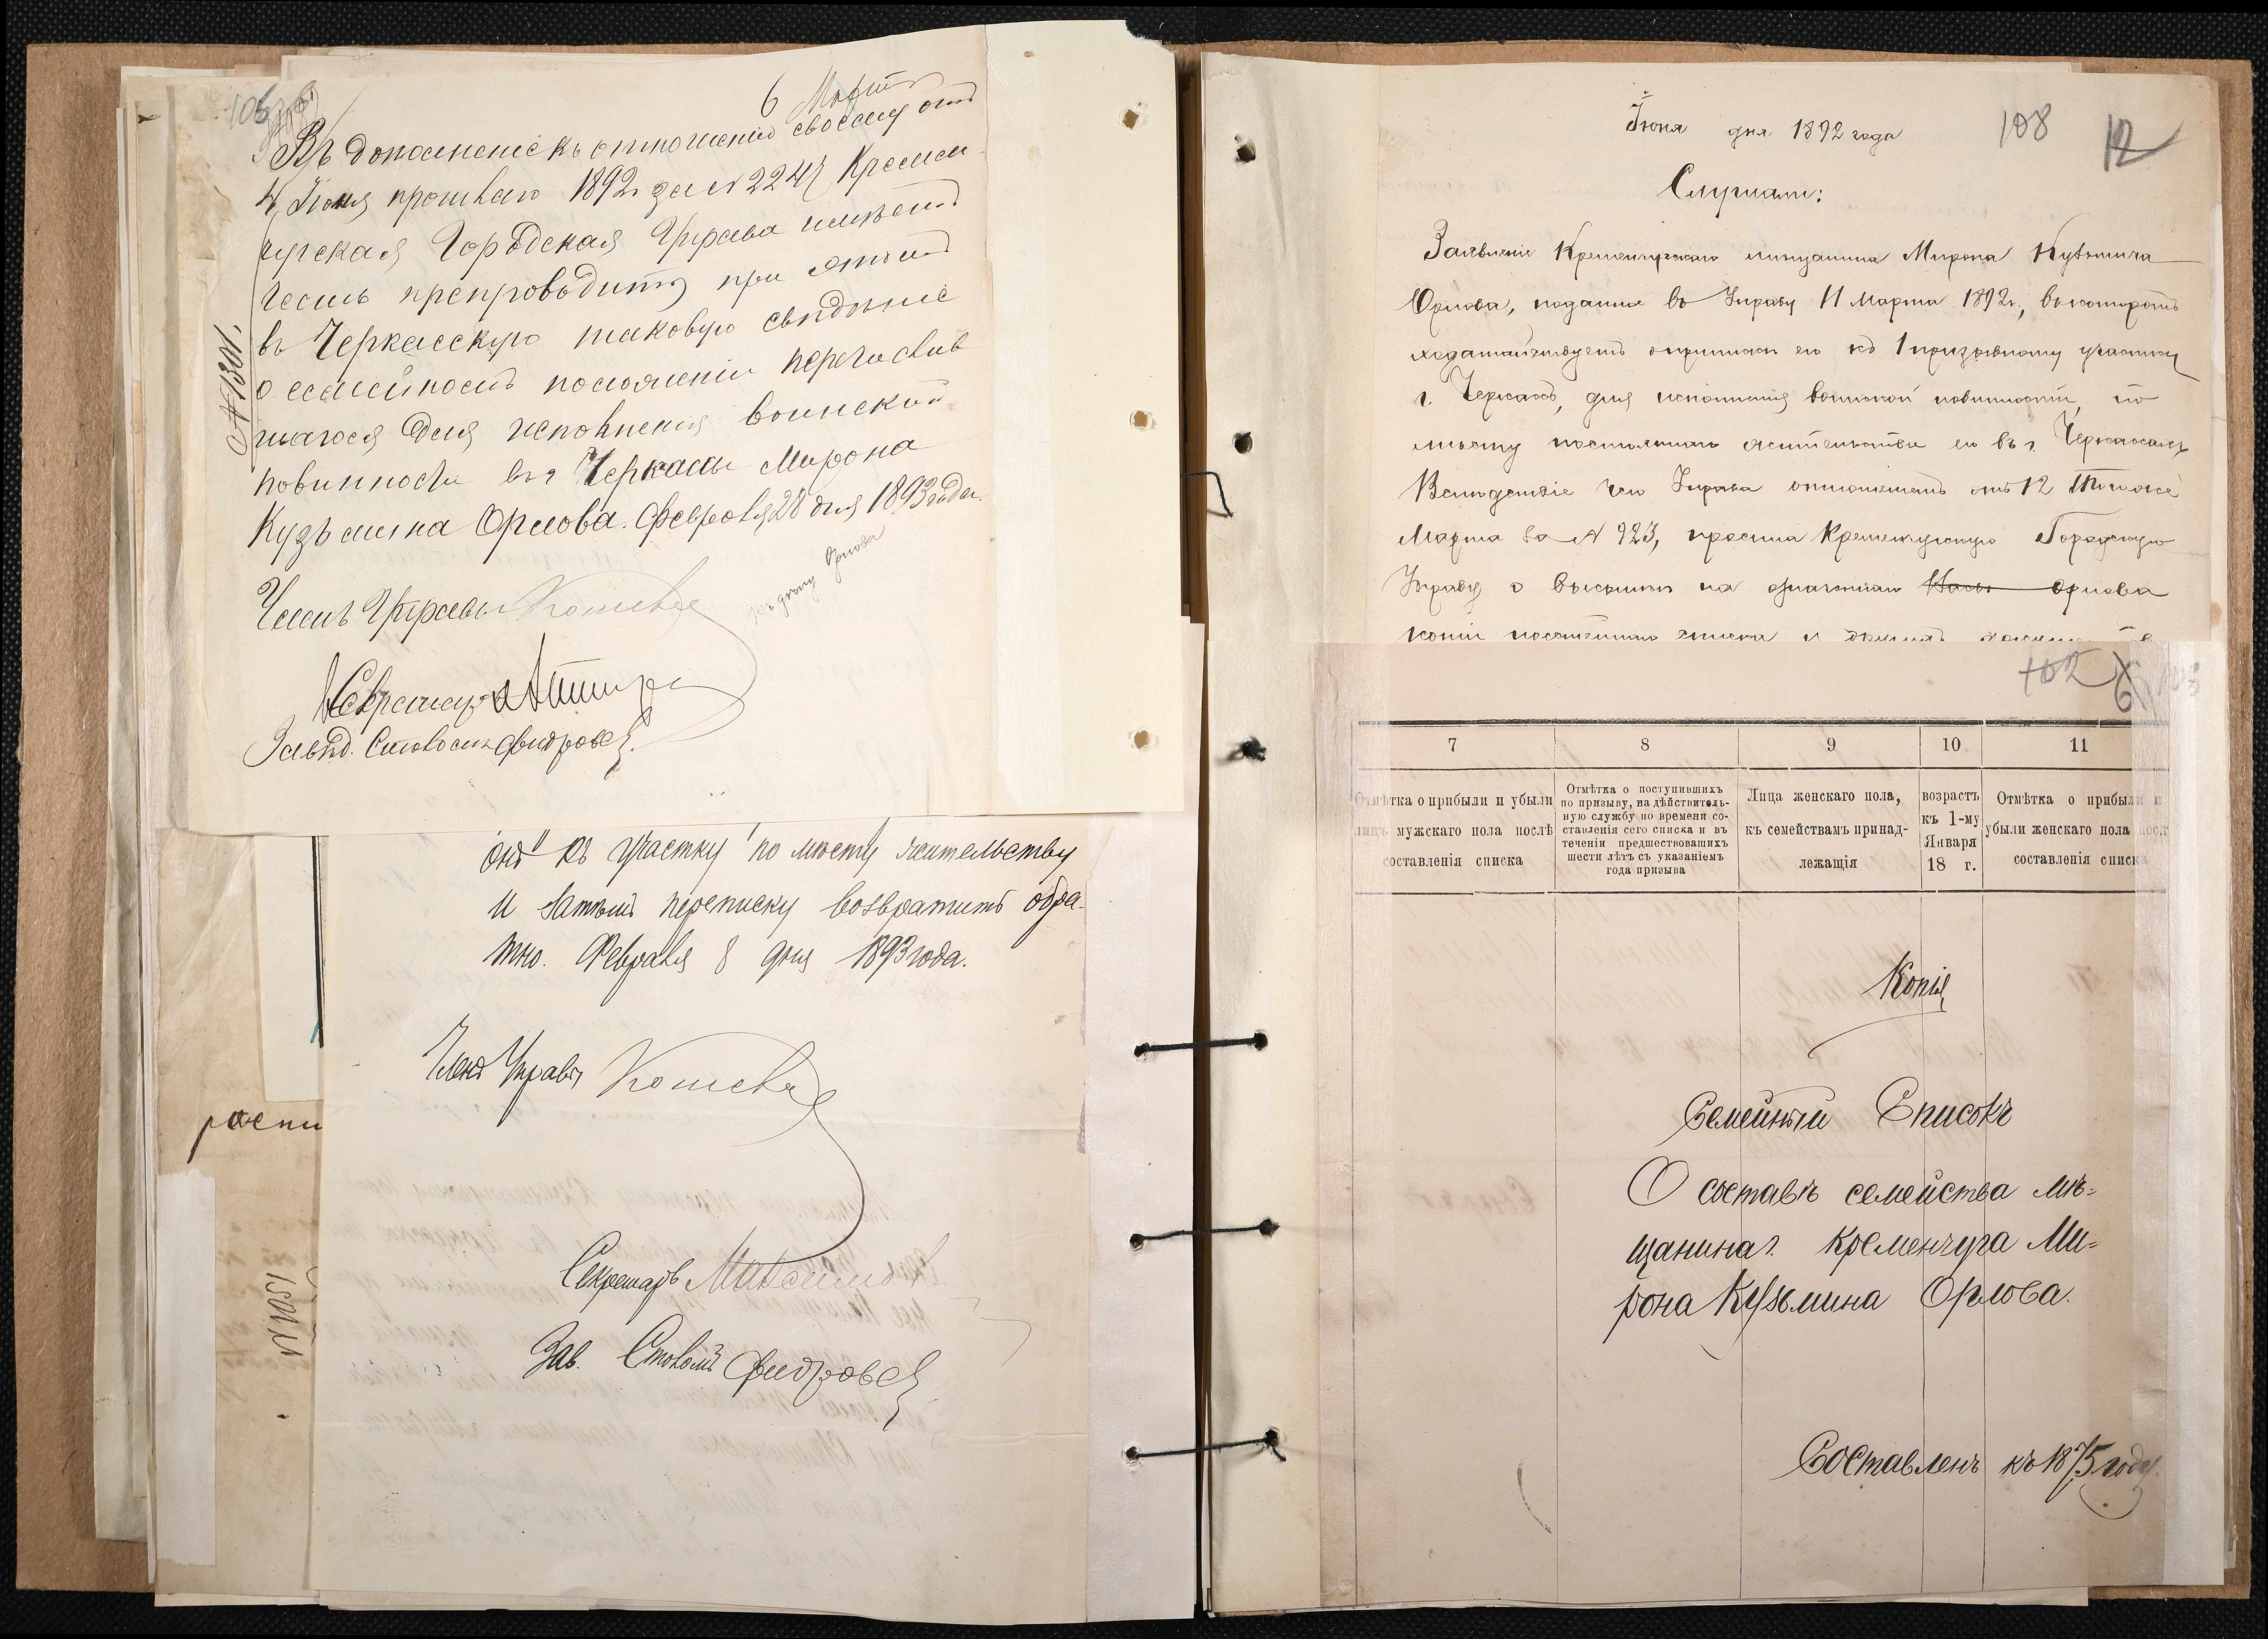 106
6 Марта
Въ дополненіе къ отношенію своему отъ
4 Іюня прошлаго 1892 г за № 2247 Кремен
чугская Городская Управа имѣетъ
честь препроводить при этомъ
въ Черкасскую таковую свѣдѣніе
о семейномъ положеніи перечислив
шагося для исполненія воинской
повинности въ г Черкассы Мирона
Кузьмина Орлова. Февраля 28 дня 1893 года.
№ 1301.
Членъ Управы
Секретарь
Завѣд. Столомъ
Орлова
онъ къ участку по мѣсту жительству
и затѣмъ переписку возвратить обра-
тно. Февраля 8 дня 1893 года.
Членъ Управы
Секретарь
Зав. Столомъ
роспи
№ 1051
Іюня дня 1892 года
108
12
Слушали:
Заявленіе Кременчугскаго мѣщанина Мирона Кузьмича
Орлова, поданное въ Управу 11 Марта 1892 г., въ которомъ
ходатайствуетъ о припискѣ его къ 1 призывному участку
г. Черкассъ, для исполненія воинской повинности, по
мѣсту постояннаго жительства его въ г. Черкассахъ
Вслѣдствіе чего Управа отношеніемъ отъ 12 того же
Марта за № 923, просила Кременчугскую Городскую
Управу о высылкѣ на Орлова
копіи посемейнаго списка и
102
7
8
9
10
11
Отмѣтка о прибыли и убыли
лицъ мужскаго пола послѣ
составленія списка
Отмѣтка о поступившихъ
по призыву, на дѣйствитель-
ную службу по времени со-
ставленія сего списка и въ
теченіи предшествовавшихъ
шести лѣтъ съ указаніемъ
года призыва
Лица женскаго пола,
къ семействамъ принад-
лежащія
возрастъ
къ 1-му
Января
18 г.
Отмѣтка о прибыли и
убыли женскаго пола посл
составленія списка
Копія
Семейный Списокъ
О составѣ семейства мѣ=
щанина г. Кременчуга Ми=
рона Кузьмина Орлова.
Составленъ къ 1875 году.